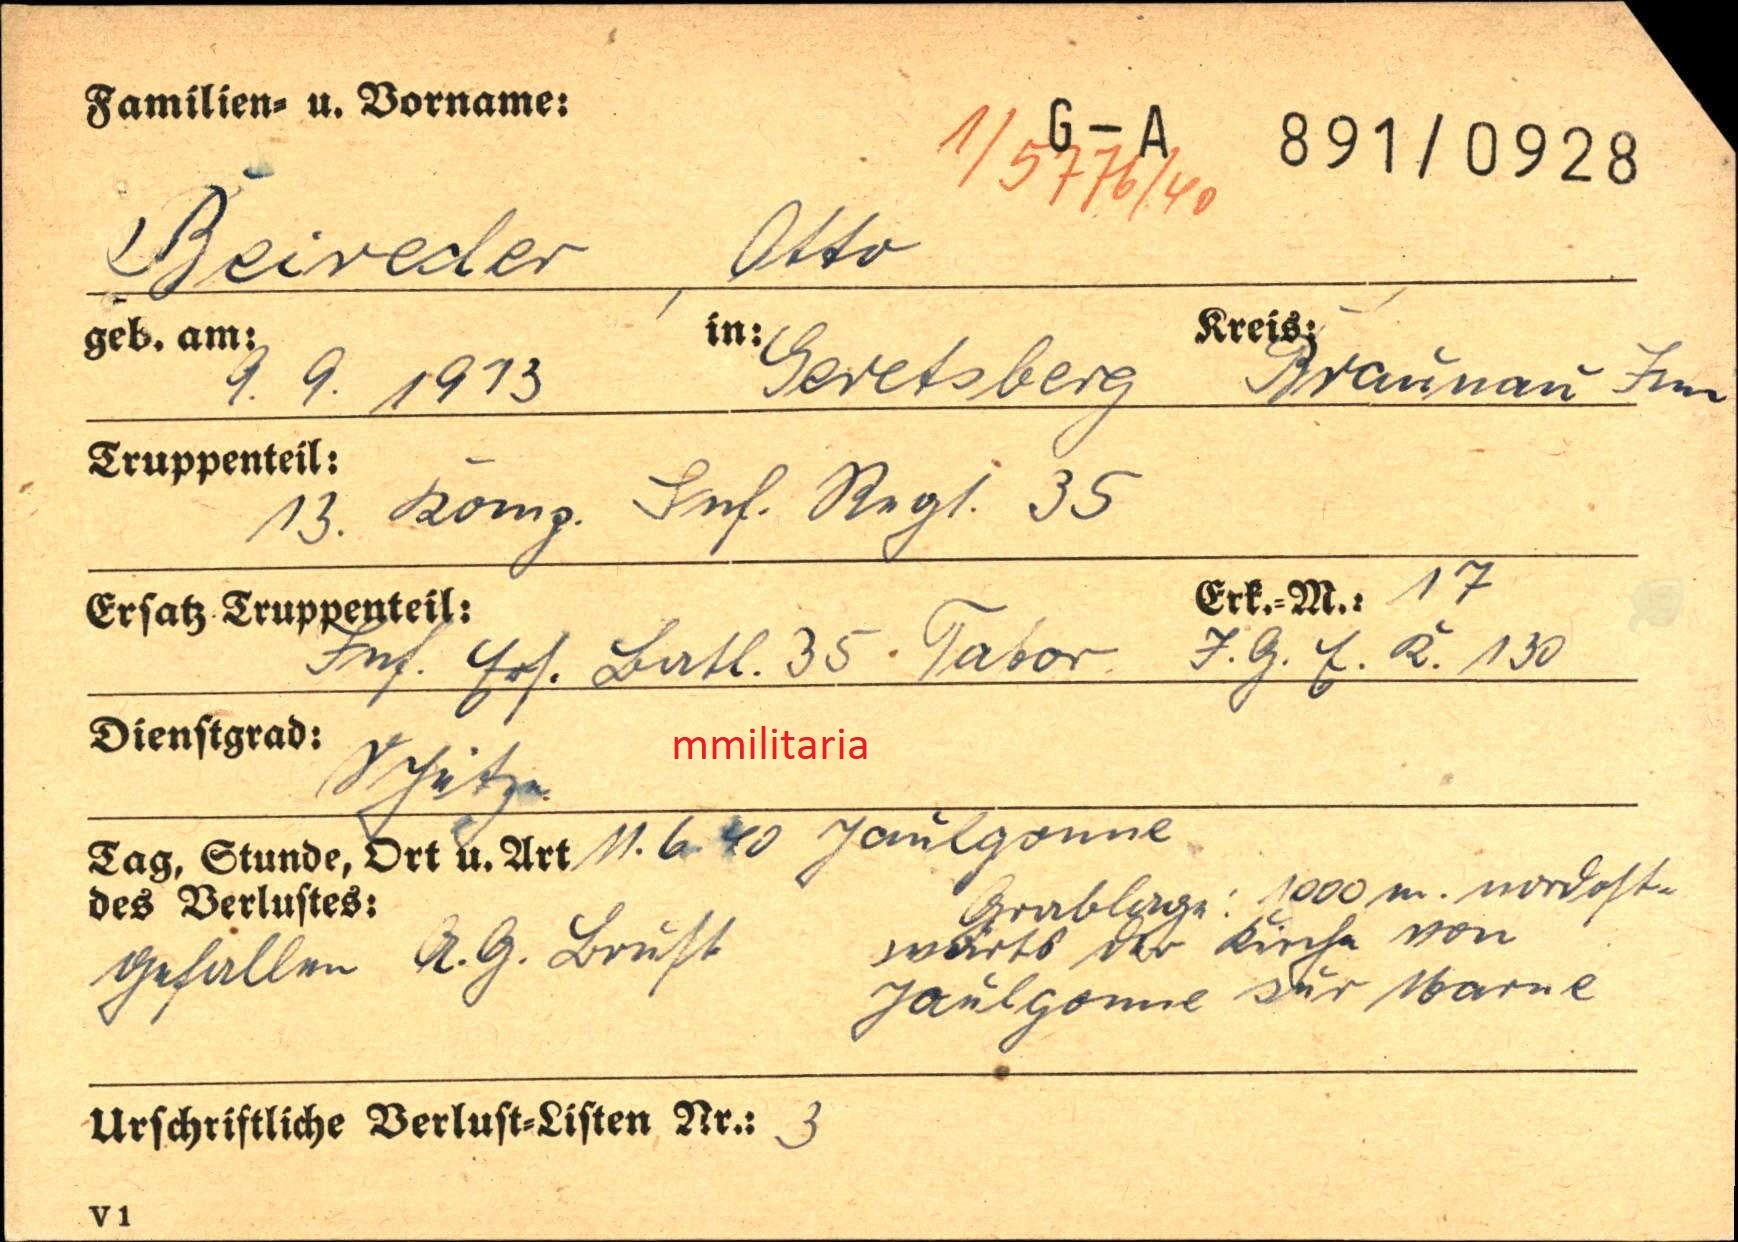 Familien- u. Vorname:
G-A 891/0928
1/5776/40
Beireder, Otto
geb. am: 9. 9. 1913 in: Geretsberg Kreis: Braunau Inn
Truppenteil:
13. Komp. Inf. Regt. 35
Ersatz Truppenteil: Erk.-M.: 17
Inf. Ers. Batl. 35 Tabor J.G.E.K. 130
Dienstgrad: Schütze
mmilitaria
Tag, Stunde, Ort u. Art 11.6.40 Jaulgonne
des Verlustes:
Grablage: 1000 m. nordost-
gefallen A.G. Brust wärts der Kirche von
Jaulgonne zur Marne
Urschriftliche Verlust-Listen Nr.: 3
V 1